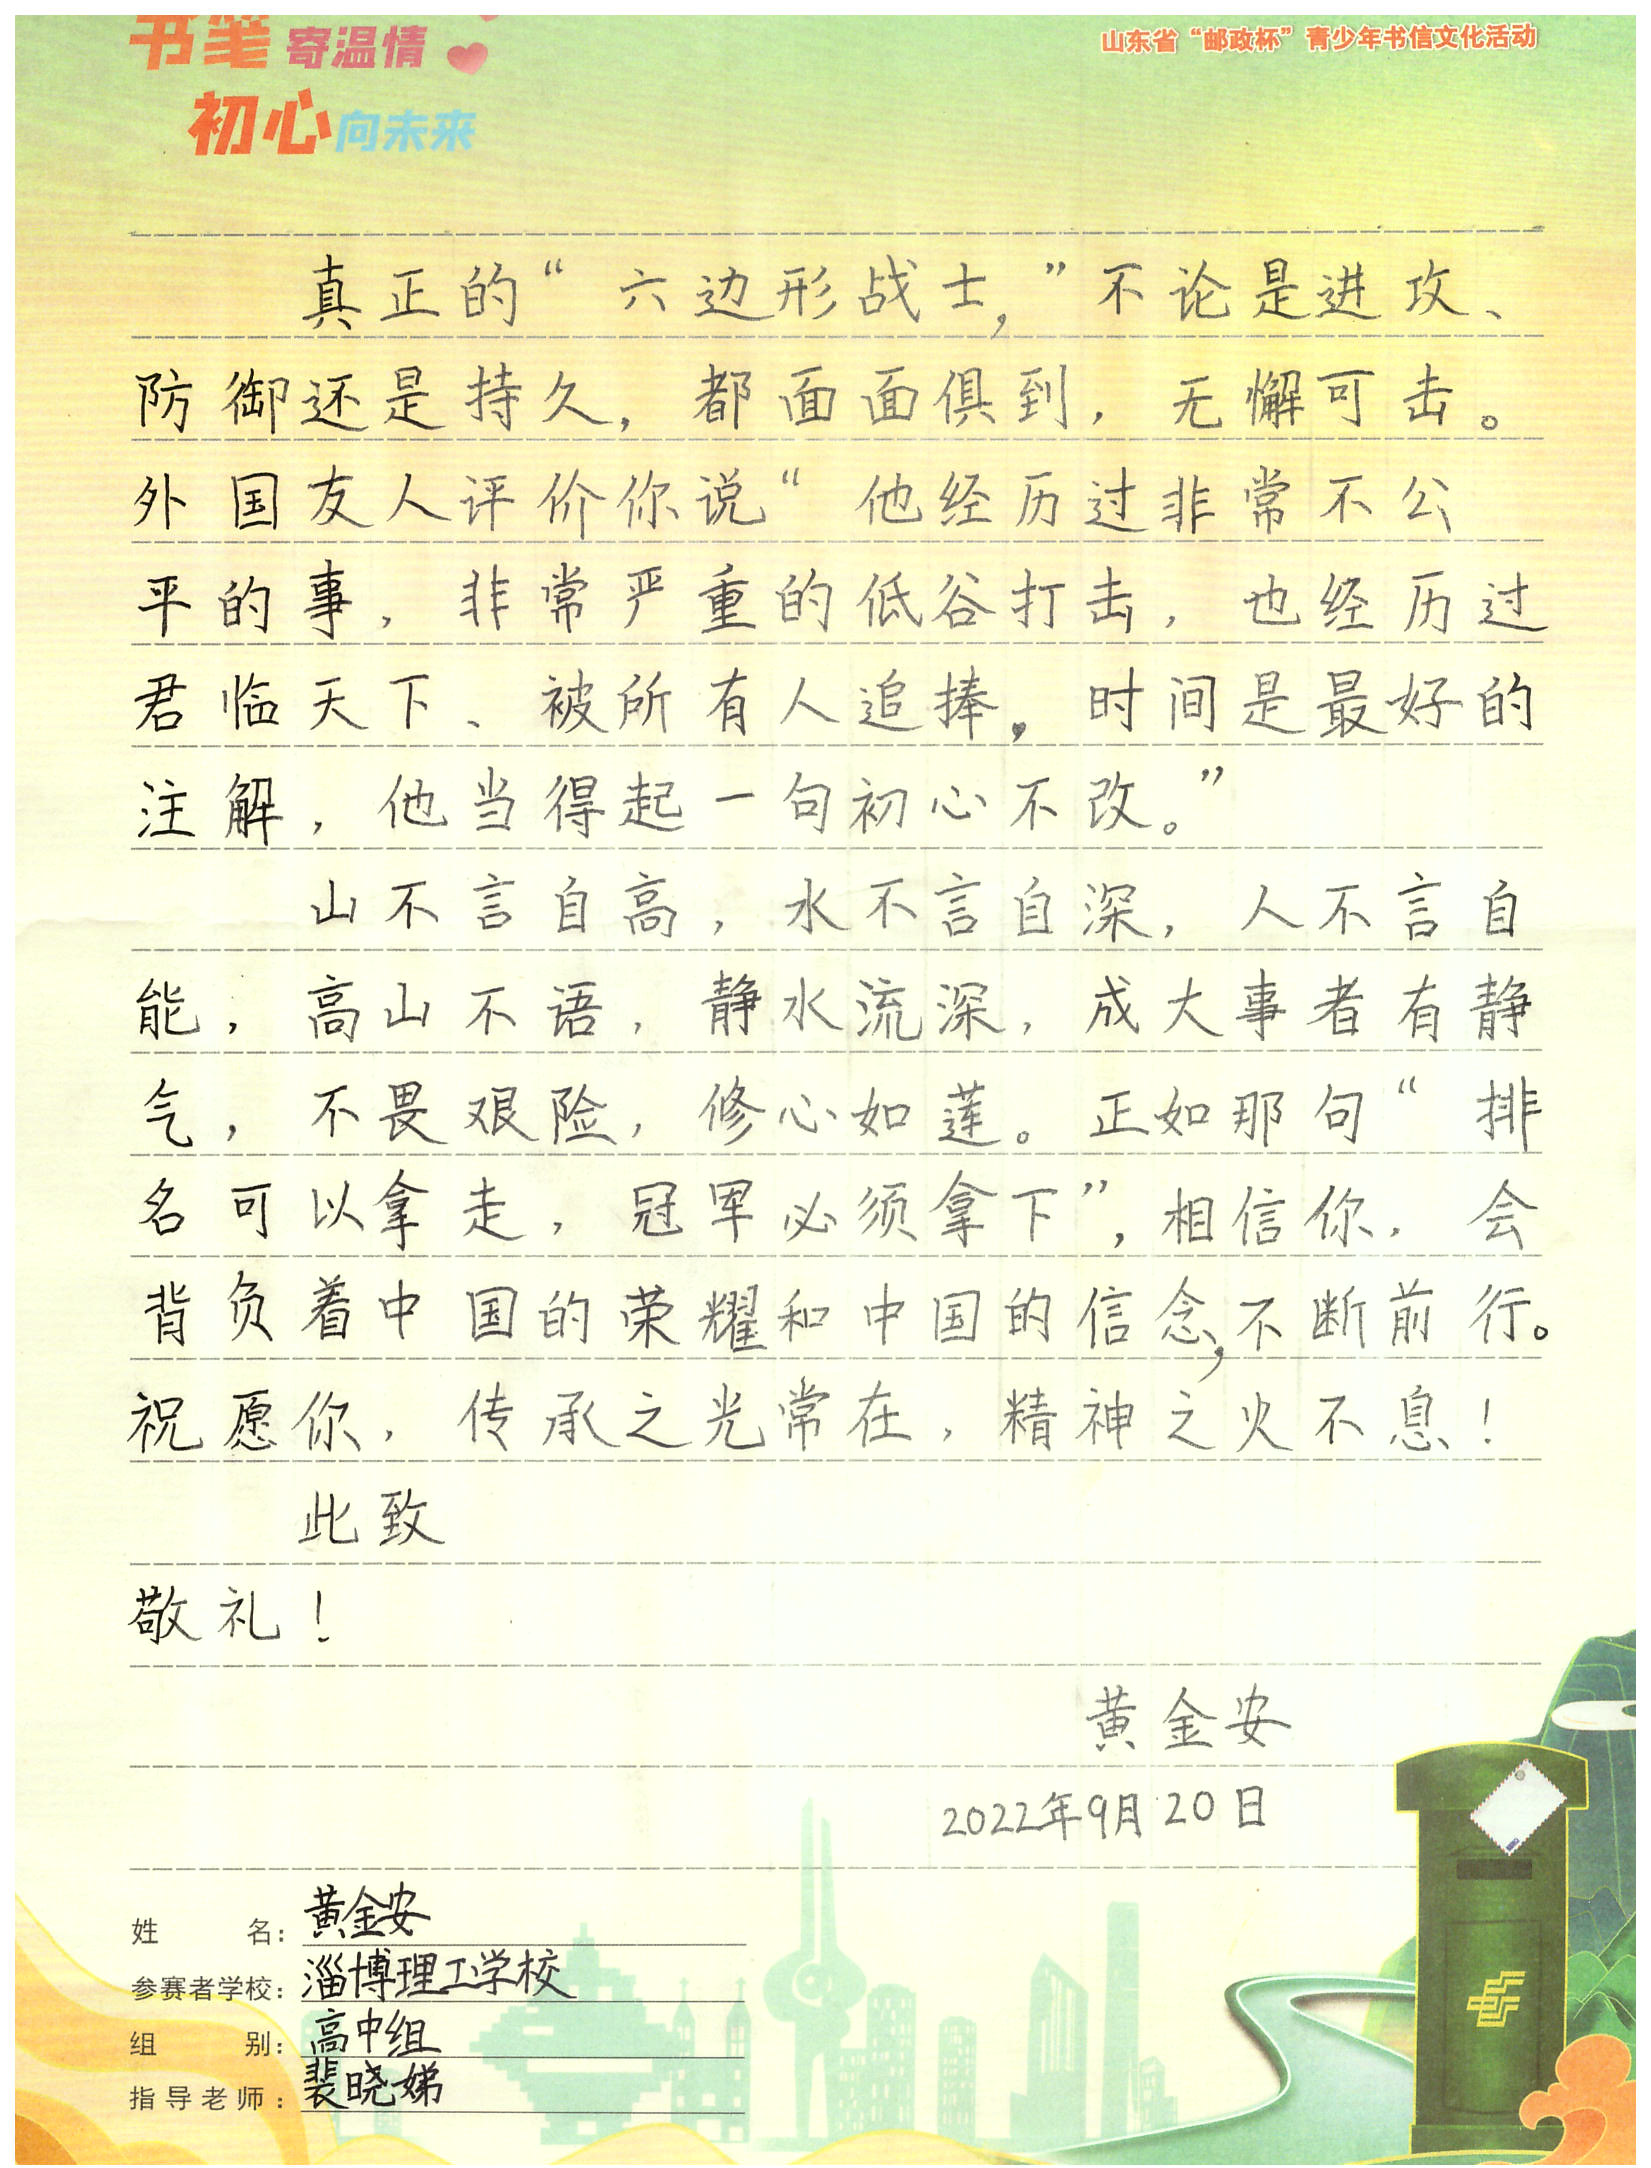 书笔寄温情
初心向未来
山东省“邮政杯”青少年书信文化活动
真正的“六边形战士,”不论是进攻、
防御还是持久，都面面俱到，无懈可击。
外国友人评价你说“他经历过非常不公
平的事，非常严重的低谷打击，也经历过
君临天下、被所有人追捧，时间是最好的
注解，他当得起一句初心不改。”
山不言自高，水不言自深，人不言自
能，高山不语，静水流深，成大事者有静
气，不畏艰险，修心如莲。正如那句“排
名可以拿走，冠军必须拿下”，相信你，会
背负着中国的荣耀和中国的信念，不断前行。
祝愿你，传承之光常在，精神之火不息！
此致
敬礼！
黄金安
2022年9月20日
姓名：黄金安
参赛者学校：淄博理工学校
组别：高中组
指导老师：裴晓娣